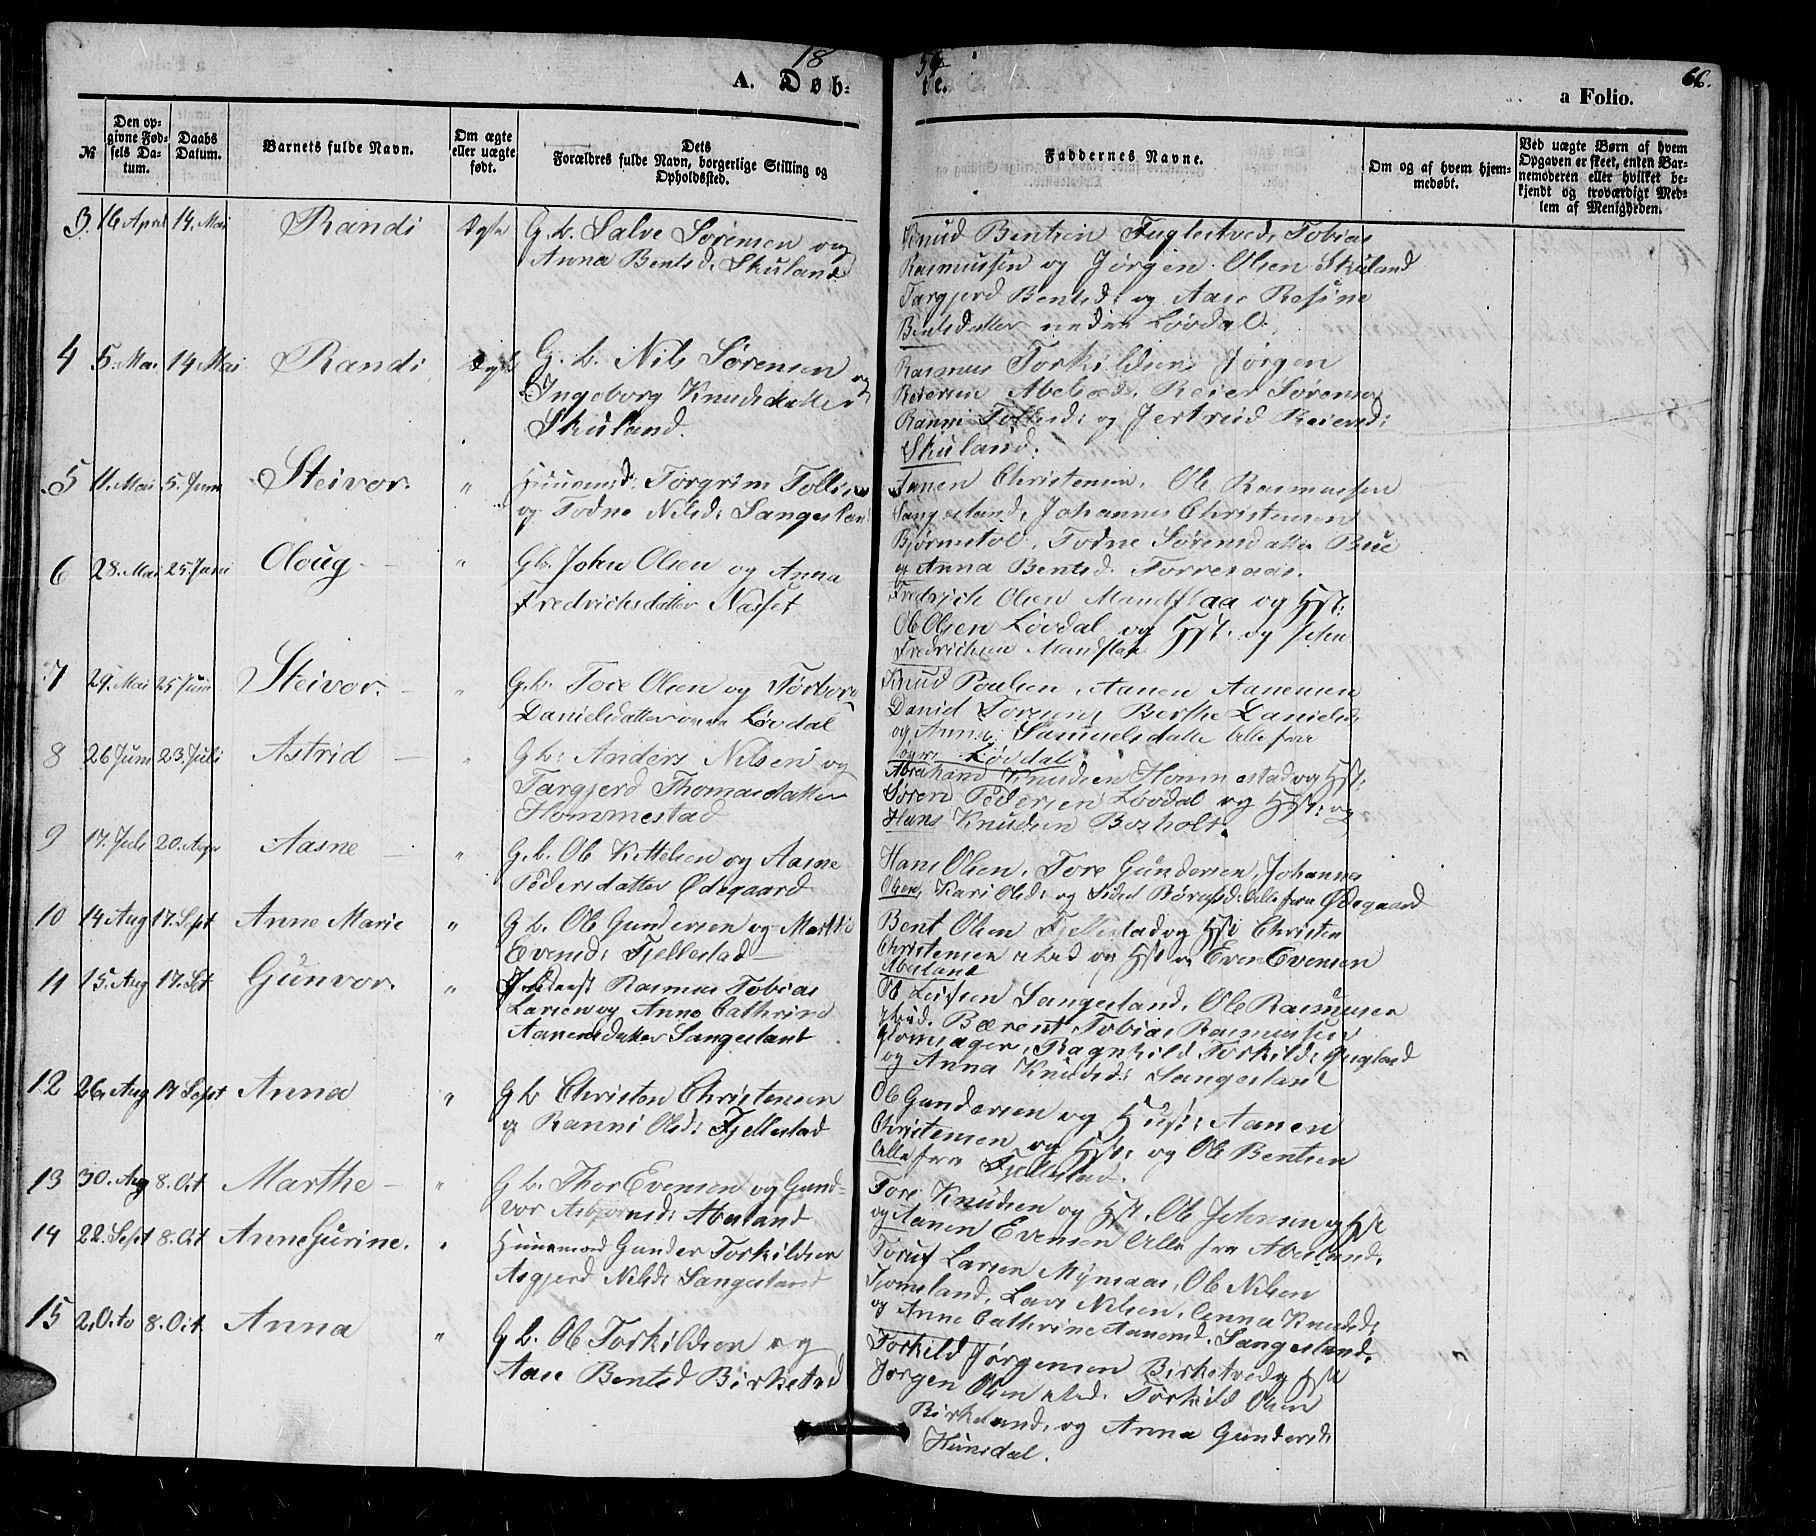 18
54
66.
A. Døb-
te.
a Folio.
№
Den op-
givne Fød-
sels Da-
tum.
Daabs
Datum.
Barnets fulde Navn.
Om ægte
eller uægte
født.
Dets
Forældres fulde Navn, borgerlige Stilling og
Opholdssted.
Faddernes Navne.
Om og af hvem hjem-
medøbt.
Ved uægte Børn af hvem
Opgaven er skeet, enten Bar-
nemoderen eller hvilket be-
kjendt og troværdigt Med-
lem af Menigheden.
3. 16 April 14. Mai Randi Ægte G. b. Salve Sørensen og
Anna Bentsd: Skuland
Knud Bentsen Fuglestved, Tobias
Rasmussen og Jørgen Olsen Skuland
Targjerd Bentsd: og Aase Resine
Bentsdatter neden Løvdal.
4 5. Mai 14 Mai Randi Ægte G. b. Nils Sørensen og
Ingeborg Knudsdatter
Skuland.
Rasmus Torkildsen Jørgen
Reiersen Abeland, Reier Sørensen
Ranni Tollesd: og Jertrud Reiersd:
Skuland.
5 11. Mai 5. Juni Steivor. " Huusmd. Torgrim Tollsen
og Todne Nilsd: Sangesland
Aanen Christensen. Ole Rasmussen
Sangesland, Johannes Christensen
Bjørnstøl, Todne Sørensdatter Bue
og Anna Bentsd. Torresaas.
6 28. Mai 25 Juni Oloug - " Gb. John Olsen og Anna
Fredrichsdatter Nasset
Fredrich Olsen Mandflaa og Hst:
Ole Olsen Løvdal og Hst. og John
Fredrichsen Manflaa
7 29. Mai 25 Juni Steivor. - " G. b. Tore Olsen og Torbor
Danielsdatter Løvdal
Knud Poulsen, Aanen Aanensen
Daniel Toresen, Berthe Danielsd:
og Anna Samuelsdatter Alle fra
Løvdal
8 26 Juni 23. Juli Astrid - " G. b: Anders Nilsen og
Targjerd Thomasdatter
Hommestad
Abraham Knudsen Hommestad og Hst:
Søren Pedersen Løvdal og Hst: og
Hans Knudsen Bosholt.
9 17. Juli 20. Aug Aasne - " G. b. Ole Kittelsen og Aasne
Pedersdatter Ødegaard
Hans Olsen, Tore Gundersen, Johannes
Olsen, Kari Olsd: og Sidsel Børufsd: Alle fra Ødegaard
10 14 Aug 17. Sept Anne Marie " G b. Ole Gundersen og Marthe
Evensd: Fjellestad
Bent Olsen Fjellestad og Hst Christen
Christensen og Hst og Even Evensen
Abesland
11 15. Aug 17. Set Gunvor. " Rasmus Tobias
Larsen og Anne Cathrine
Aanensdatter Sangesland
Ole Leifsen Sangesland, Ole Rasmussen
Bærent Tobias Rasmussen
Glomsager, Ragnhild Torkilds: Haugland
og Anna Knudsd: Sangesland
12 26. Aug 17 Sept Anna " G b Christen Christensen
og Ranni Olsd: Fjellestad
Ole Gundersen og Hust: Aanen
Christensen og Hst: og Ole Bentsen
Alle fra Fjellestad.
13 30. Aug 8. Oct Marthe - " G b. Thor Evensen og Gund-
vor Asbjørnsd: Abesland
Tore Knudsen og Hst, Ole Johnsen og Hst
og Aanen Evensen Alle fra Abesland.
14 22. Sept 8. Oct Anne Gurine. " Huusmand Gunder Torkildsen
Asgjerd Nilsd: Sangesland
Toruf Larsen Mynaas, Ole Nilsen
Tjomsland, Lars Nilsen, Anna Knudsd:
og Anne Cathrine Aanensd. Sangesland.
15 2. Octo 8. Oct. Anna " G b. Ole Torkildsen og
Aase Bentsd Birketved
Torkild Jørgensen Birketved og Hst
Jørgen Olsen Torkild Olsen
Birkeland, og Anna Gundersd:
Hunsdal.